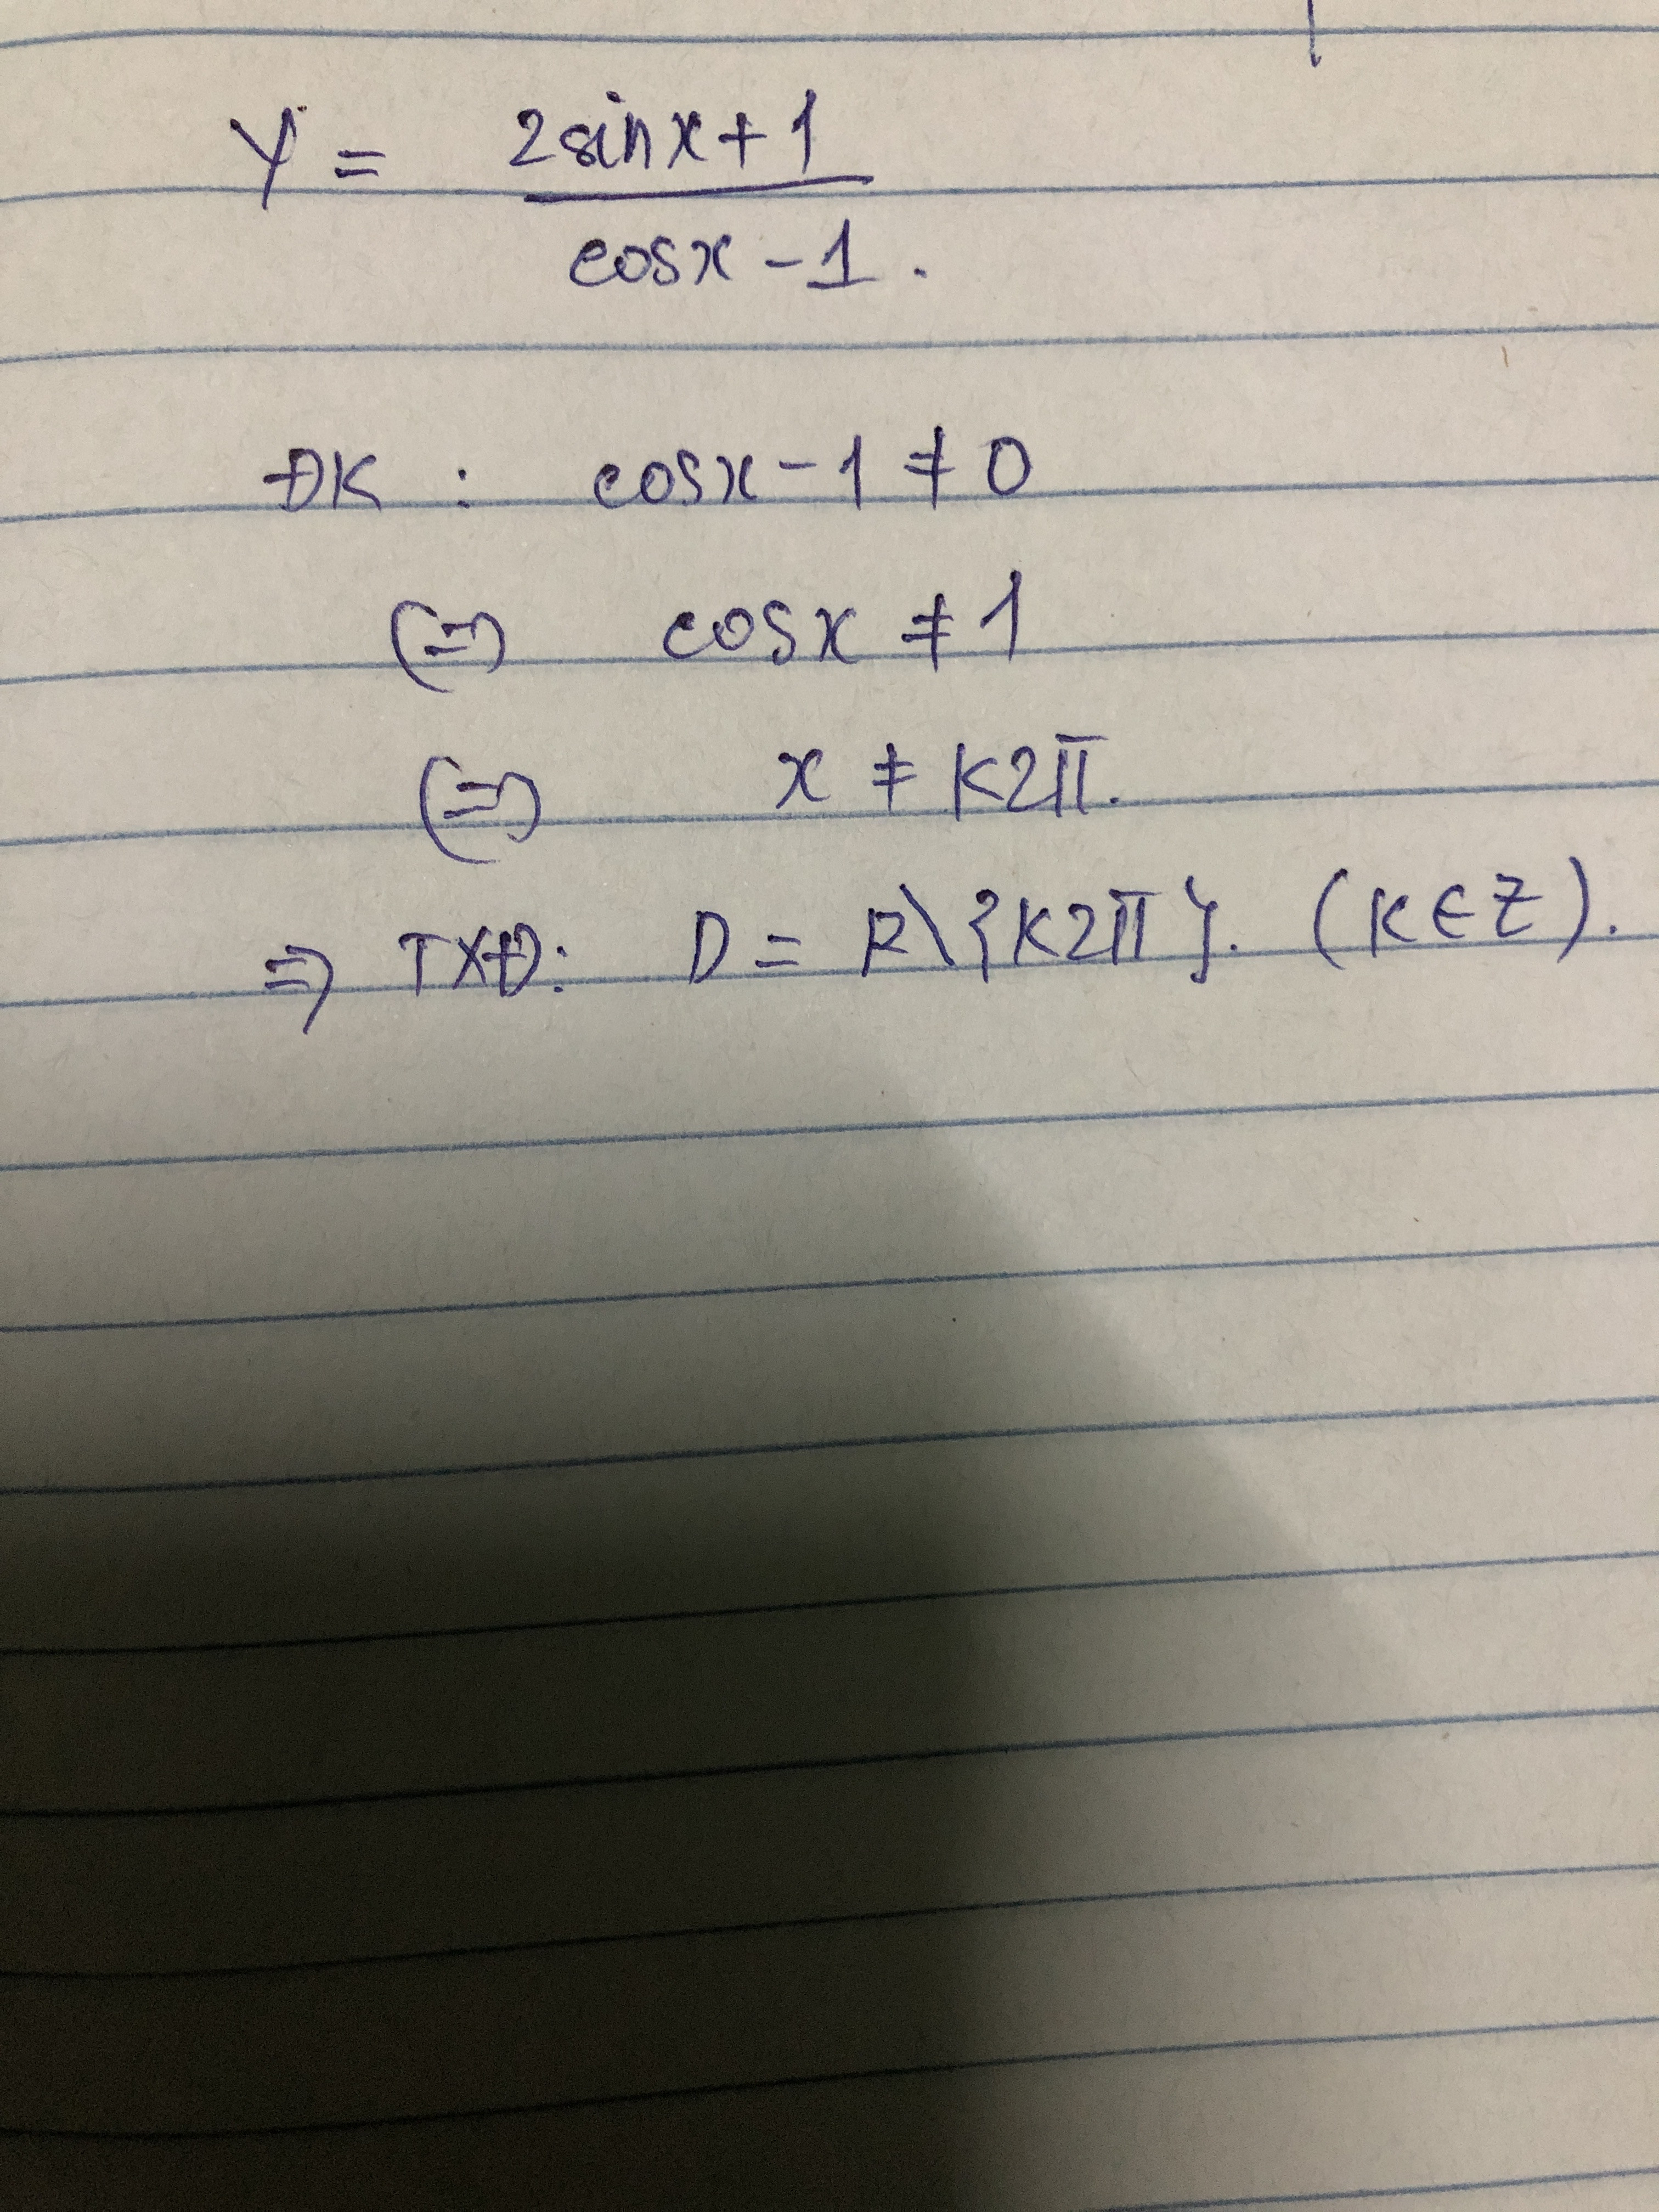 Y = 2sinx+1
cosx - 1.
ĐK : cosx - 1 ≠ 0
(=) cosx ≠ 1
(=) x ≠ K2π.
=> TXĐ: D = R\{K2π}. (K∈Z).